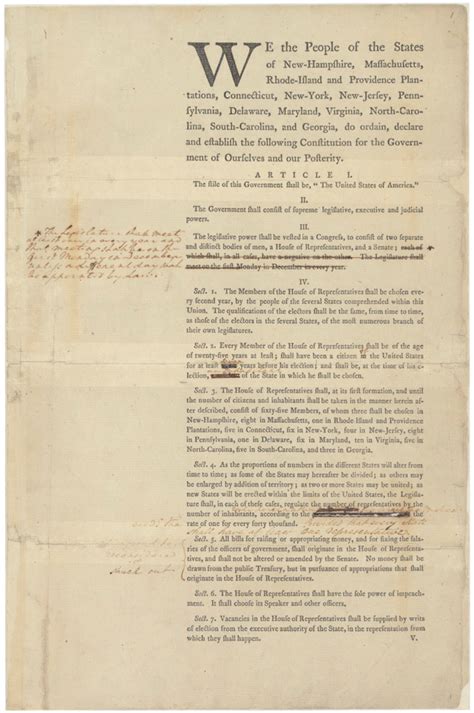 1
WE the People of the States
of New-Hampshire, Massachusetts,
Rhode-Island and Providence Plan-
tations, Connecticut, New-York, New-Jersey, Penn-
sylvania, Delaware, Maryland, Virginia, North-Caro-
lina, South-Carolina, and Georgia, do ordain, declare
and establish the following Constitution for the Govern-
ment of Ourselves and our Posterity.
ARTICLE I.
The stile of this Government shall be, "The United States of America."
II.
The Government shall consist of supreme legislative, executive and judicial
powers.
III.
The legislative power shall be vested in a Congress, to consist of two separate
and distinct bodies of men, a House of Representatives, and a Senate; each of
which shall, in all cases, have a negative on the other. The Legislature shall
meet on the first Monday in December in every year.
The Legislature shall meet
at least once in every year and
that meeting shall be on the
first Monday in December
unless a different day shall
be appointed by law.
IV.
Sect. 1. The Members of the House of Representatives shall be chosen eve-
ry second year, by the people of the several States comprehended within this
Union. The qualifications of the electors shall be the same, from time to time,
as those of the electors in the several States, of the most numerous branch of
their own legislatures.
Sect. 2. Every Member of the House of Representatives shall be of the age
of twenty-five years at least; shall have been a citizen in the United States
for at least years before his election; and shall be, at the time of his e-
lection, of the State in which he shall be chosen.
Sect. 3. The House of Representatives shall, at its first formation, and until
the number of citizens and inhabitants shall be taken in the manner herein af-
ter described, consist of sixty-five Members, of whom three shall be chosen in
New-Hampshire, eight in Massachusetts, one in Rhode-Island and Providence
Plantations, five in Connecticut, six in New-York, four in New-Jersey, eight
in Pennsylvania, one in Delaware, six in Maryland, ten in Virginia, five in
North-Carolina, five in South-Carolina, and three in Georgia.
Sect. 4. As the proportions of numbers in the different States will alter from
time to time; as some of the States may hereafter be divided; as others may
be enlarged by addition of territory; as two or more States may be united; as
new States will be erected within the limits of the United States, the Legisla-
ture shall, in each of these cases, regulate the number of representatives by the
number of inhabitants, according to the
rate of one for every forty thousand.
shall have at least one Representative
the
struck out
Sect. 5. All bills for raising or appropriating money, and for fixing the sala-
ries of the officers of government, shall originate in the House of Representa-
tives, and shall not be altered or amended by the Senate. No money shall be
drawn from the public Treasury, but in pursuance of appropriations that shall
originate in the House of Representatives.
Sect. 6. The House of Representatives shall have the sole power of impeach-
ment. It shall choose its Speaker and other officers.
Sect. 7. Vacancies in the House of Representatives shall be supplied by writs
of election from the executive authority of the State, in the representation from
which they shall happen.
V.